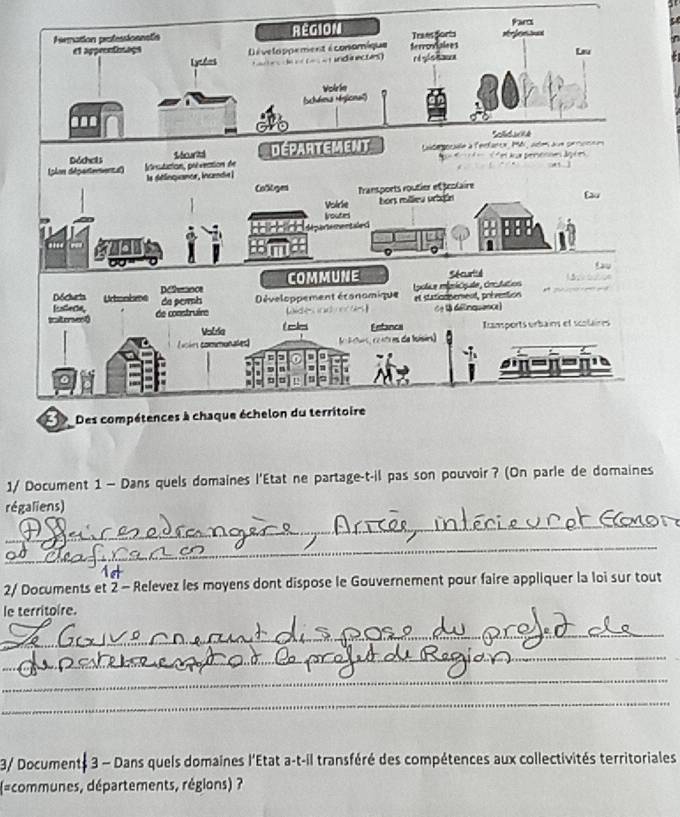 RÉGION
Formation professionnelle
et apprentissage
Lycées
Développement économique
Transports
ferroviaires
régionaux
Parcs
régionaux
Eau
Voirie
(schéma régional)
DÉPARTEMENT
Solidarité
Déchets
(plan départemental)
Sécurité
(circulation, prévention de
la délinquance, incendie)
Collèges
Voirie
(routes
départementales)
Transports routier et scolaire
hors milieu urbain
Eau
COMMUNE
Déchets
(collecte,
traitement)
Urbanisme
Délivrance
de permis
de construire
Développement économique
Sécurité
(police municipale, circulation
et stationnement, prévention
de la délinquance)
Eau
Voirie
(voies communales)
Écoles
Enfance
(crèches, centres de loisirs)
Transports urbains et scolaires
3 Des compétences à chaque échelon du territoire
1/ Document 1 – Dans quels domaines l'Etat ne partage-t-il pas son pouvoir ? (On parle de domaines
régaliens)
Affaires edrangère, Armée, intérieur et Econom
2/ Documents 1 et 2 – Relevez les moyens dont dispose le Gouvernement pour faire appliquer la loi sur tout
le territoire.
Le Gouvernement dispose du prefet de
departement et le prefet de Region
3/ Document 3 – Dans quels domaines l'Etat a-t-il transféré des compétences aux collectivités territoriales
(=communes, départements, régions) ?